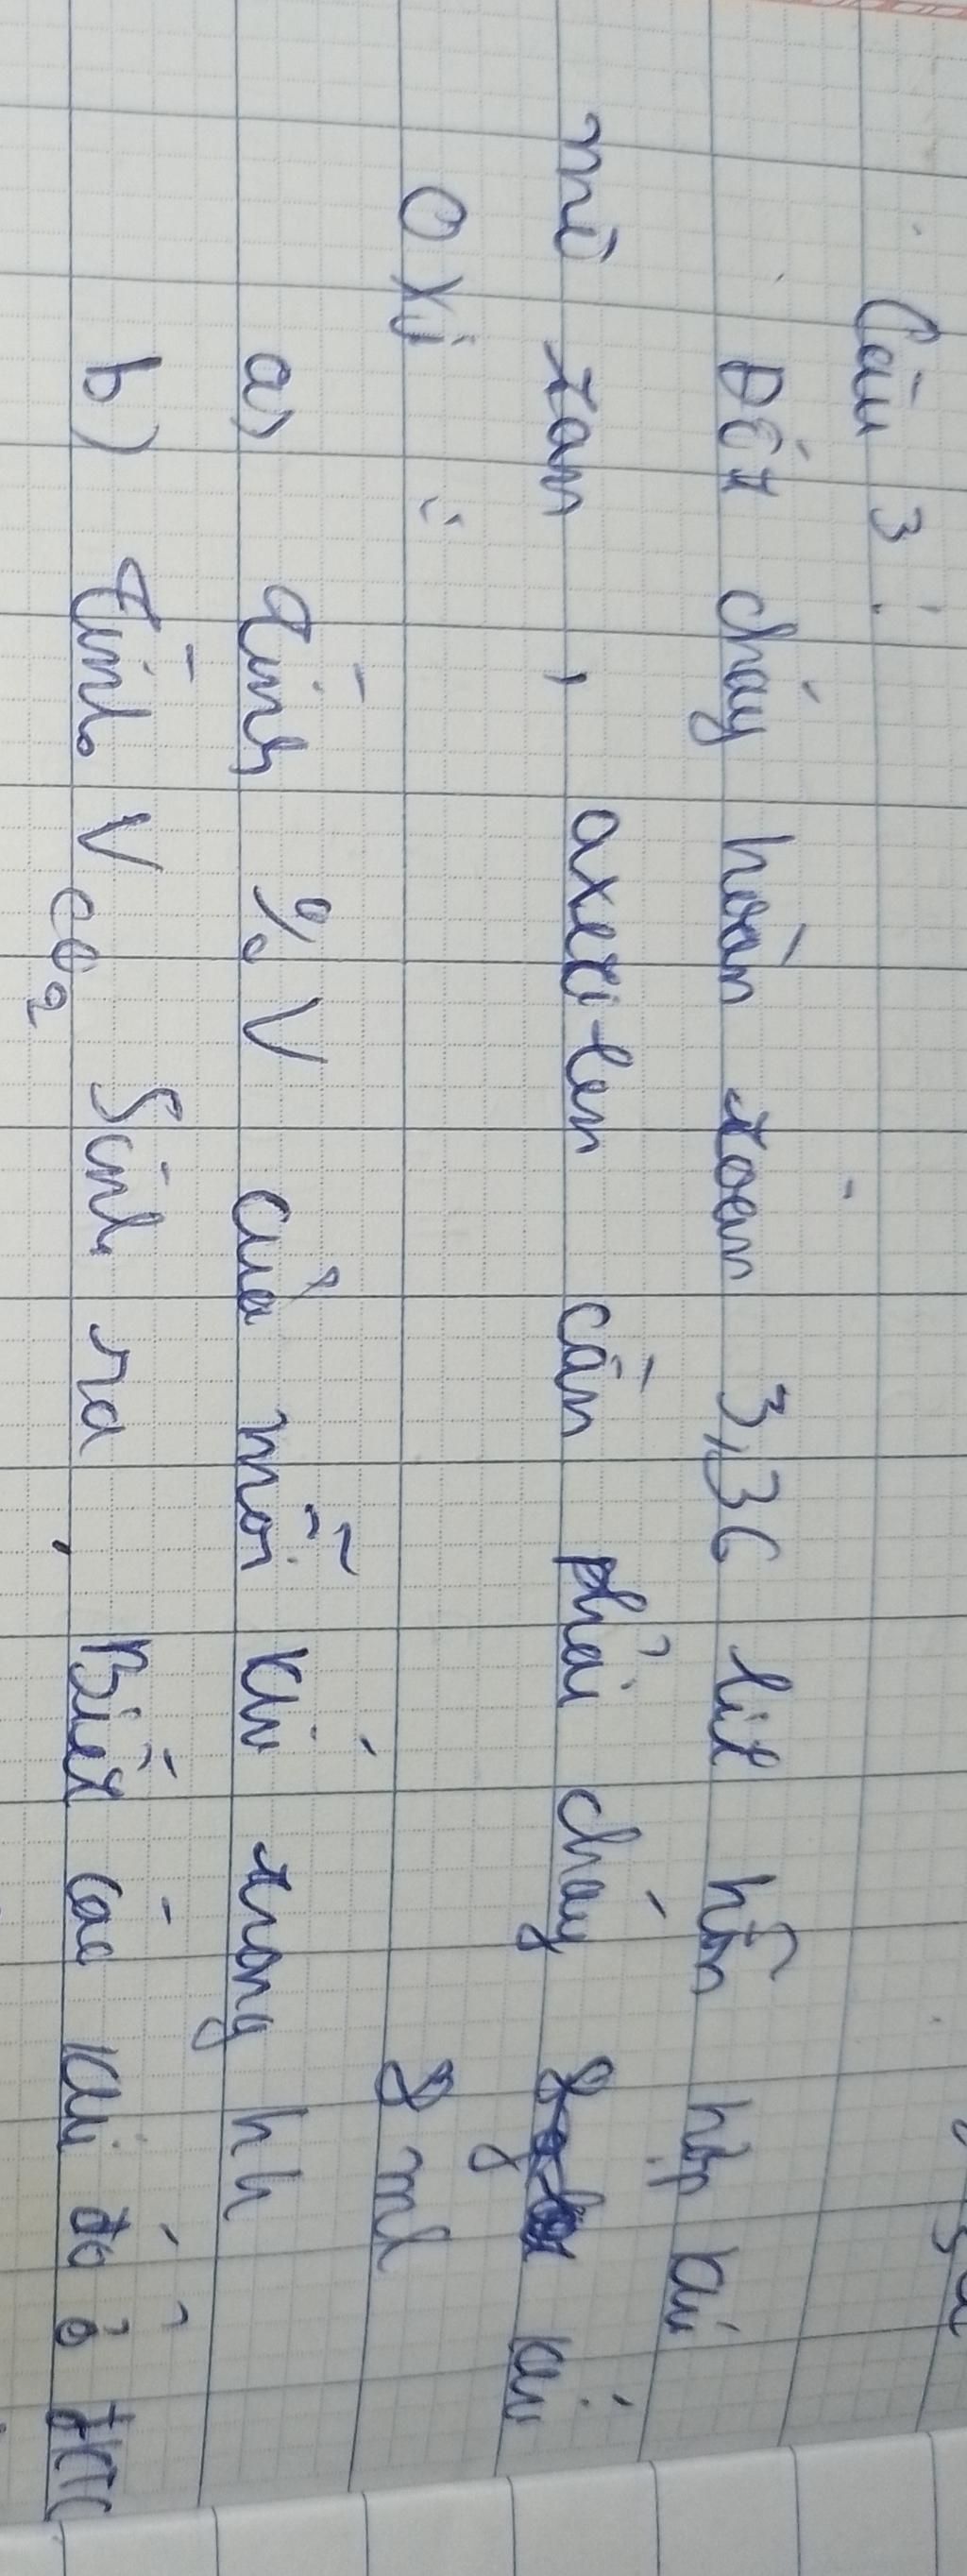 Câu 3 :
Đốt cháy hoàn toàn 3,36 lít hỗn hợp khí
mê tan , axeti-len cần phải cháy 8 khí
oxi : 8 ml
a) Tính % V của mỗi khí trong hh
b) Tính V CO2 Sinh ra , Biết các khí đo ở đktc